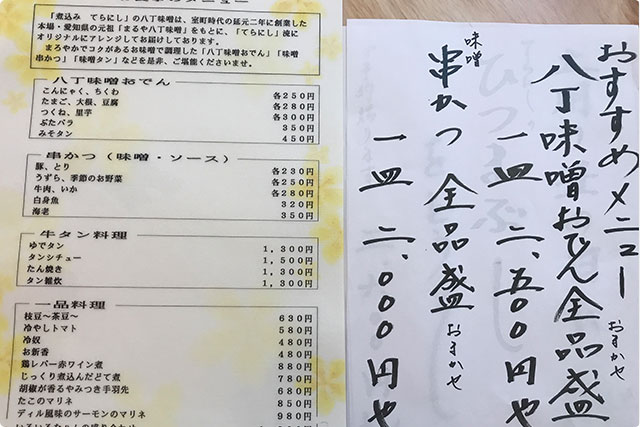 「煮込み てらにし」の八丁味噌は、室町時代の延元二年に創業した
本場・愛知県の元祖「まるや八丁味噌」をもとに、「てらにし」流に
オリジナルにアレンジしてお届けしております。
まろやかでコクがあるお味噌で調理した「八丁味噌おでん」「味噌
串かつ」「味噌タン」などを是非、ご堪能くださいませ。
八丁味噌おでん
こんにゃく、ちくわ 各250円
たまご、大根、豆腐 各280円
つくね、里芋 各300円
ぶたバラ 350円
みそタン 450円
串かつ(味噌・ソース)
豚、とり 各230円
うずら、季節のお野菜 各250円
牛肉、いか 各280円
白身魚 320円
海老 350円
牛タン料理
ゆでタン 1,300円
タンシチュー 1,500円
たん焼き 1,300円
タン雑炊 1,300円
一品料理
枝豆~茶豆~ 630円
冷やしトマト 580円
冷奴 480円
お新香 480円
鶏レバー赤ワイン煮 880円
じっくり煮込んだどて煮 780円
胡椒が香るやみつき手羽先 680円
たこのマリネ 850円
ディル風味のサーモンのマリネ 980円
おすすめメニュー
八丁味噌おでん全品盛 おまかせ
一皿 二、五〇〇円や
味噌
串かつ 全品盛 おまかせ
一皿 二、〇〇〇円や